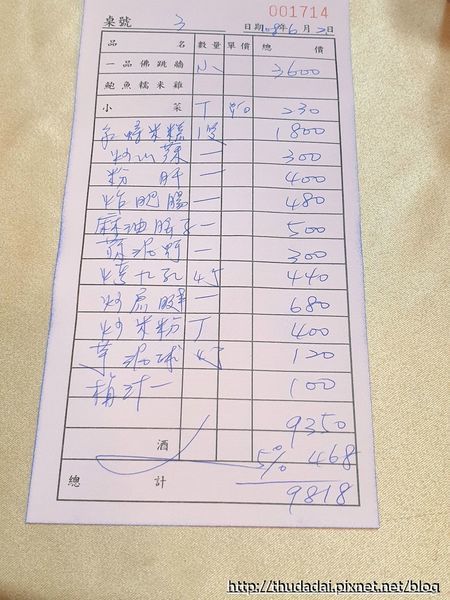 001714
桌號 3 日期08年6月2日
品名 數量 單價 總價
一品佛跳牆 小 3600
鮑魚糯米雞
小菜 丁 230
紅蟳米糕 1隻 1800
炒山蘇 一 300
粉肝 一 400
炸肥腸 一 480
麻油腰子 一 500
蒜泥蚵 一 300
烤九孔 4丁 440
炒 一 680
炒米粉 丁 400
芋泥球 4丁 120
梅汁一 100
9350
酒 5% 468
總計 9818
http://thudadai.pixnet.net/blog